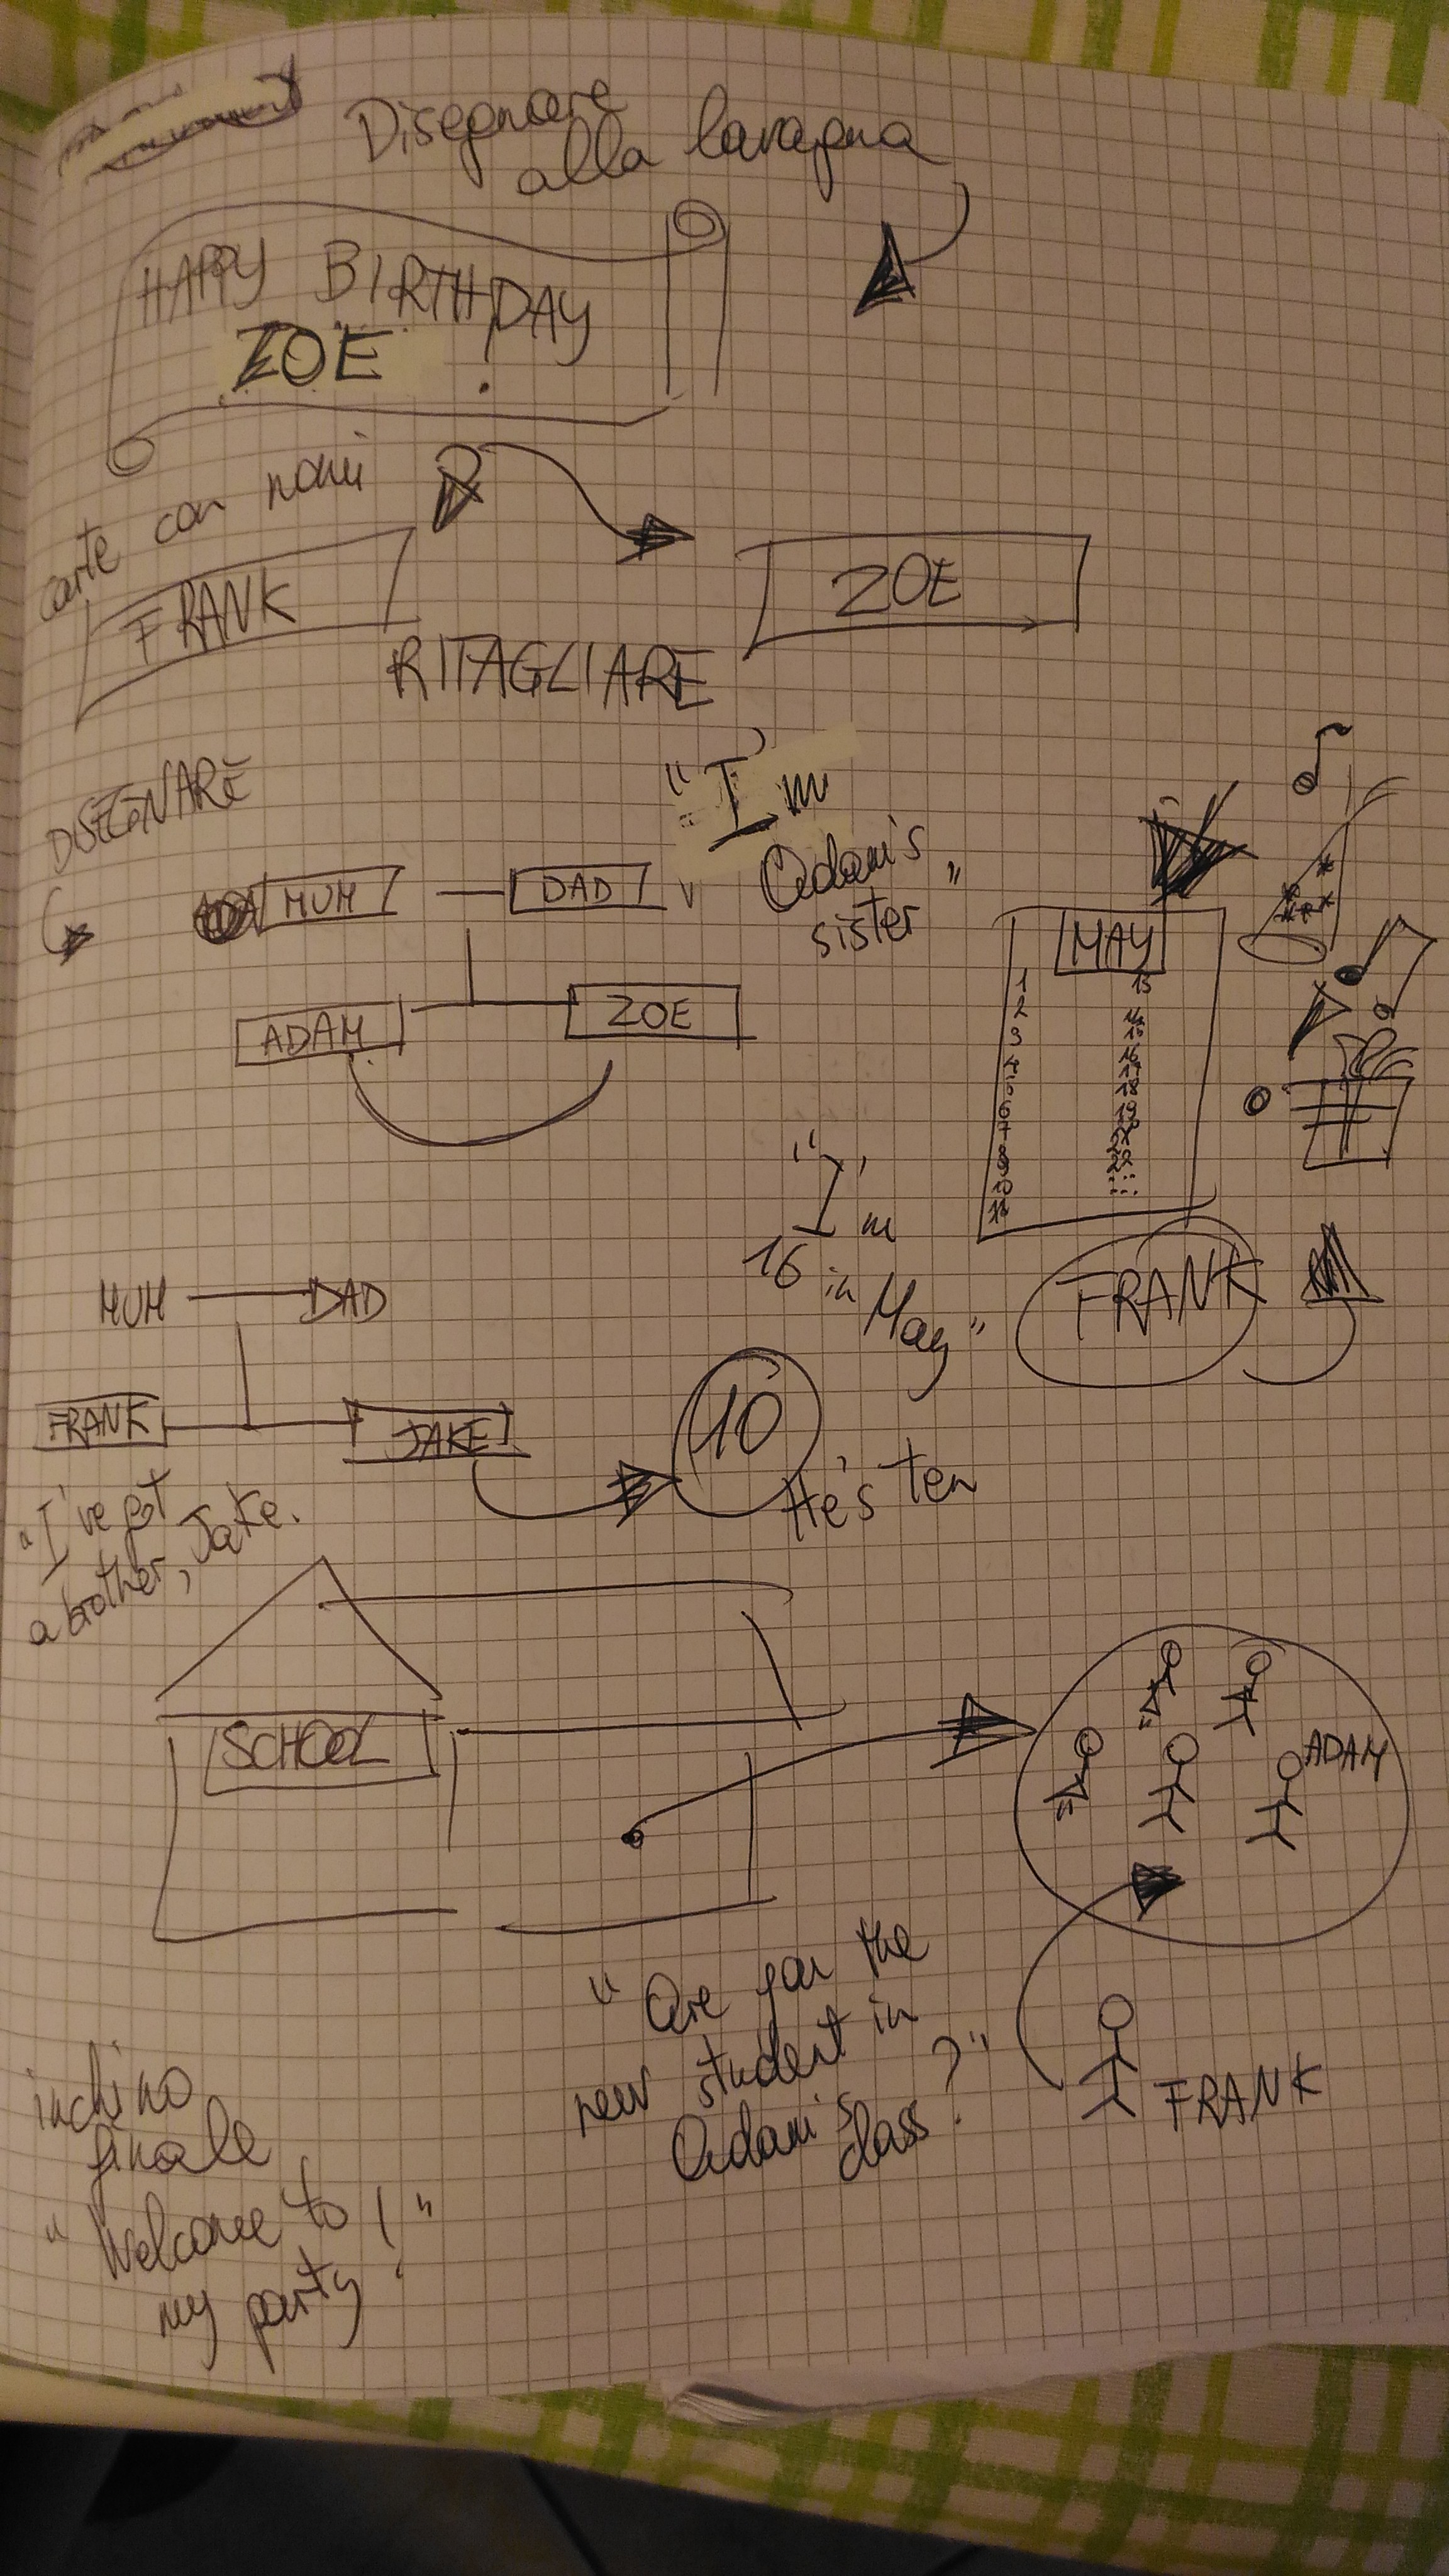 Disegnare
alla lavagna
HAPPY BIRTHDAY
ZOE !
carte con nomi
FRANK
ZOE
RITAGLIARE
DISEGNARE
MUM
DAD
"I'm
Adam's
sister"
ADAM
ZOE
MAY
1
2
3
4
5
6
7
8
9
10
15
16
17
18
19
"I'm
16 in
May"
FRANK
MUM
DAD
FRANK
JAKE
10
He's ten
"I've got
a brother, Jake.
SCHOOL
ADAM
"Are you the
new student in
Adam's class?"
FRANK
inchino
finale
"Welcome to
my party!"